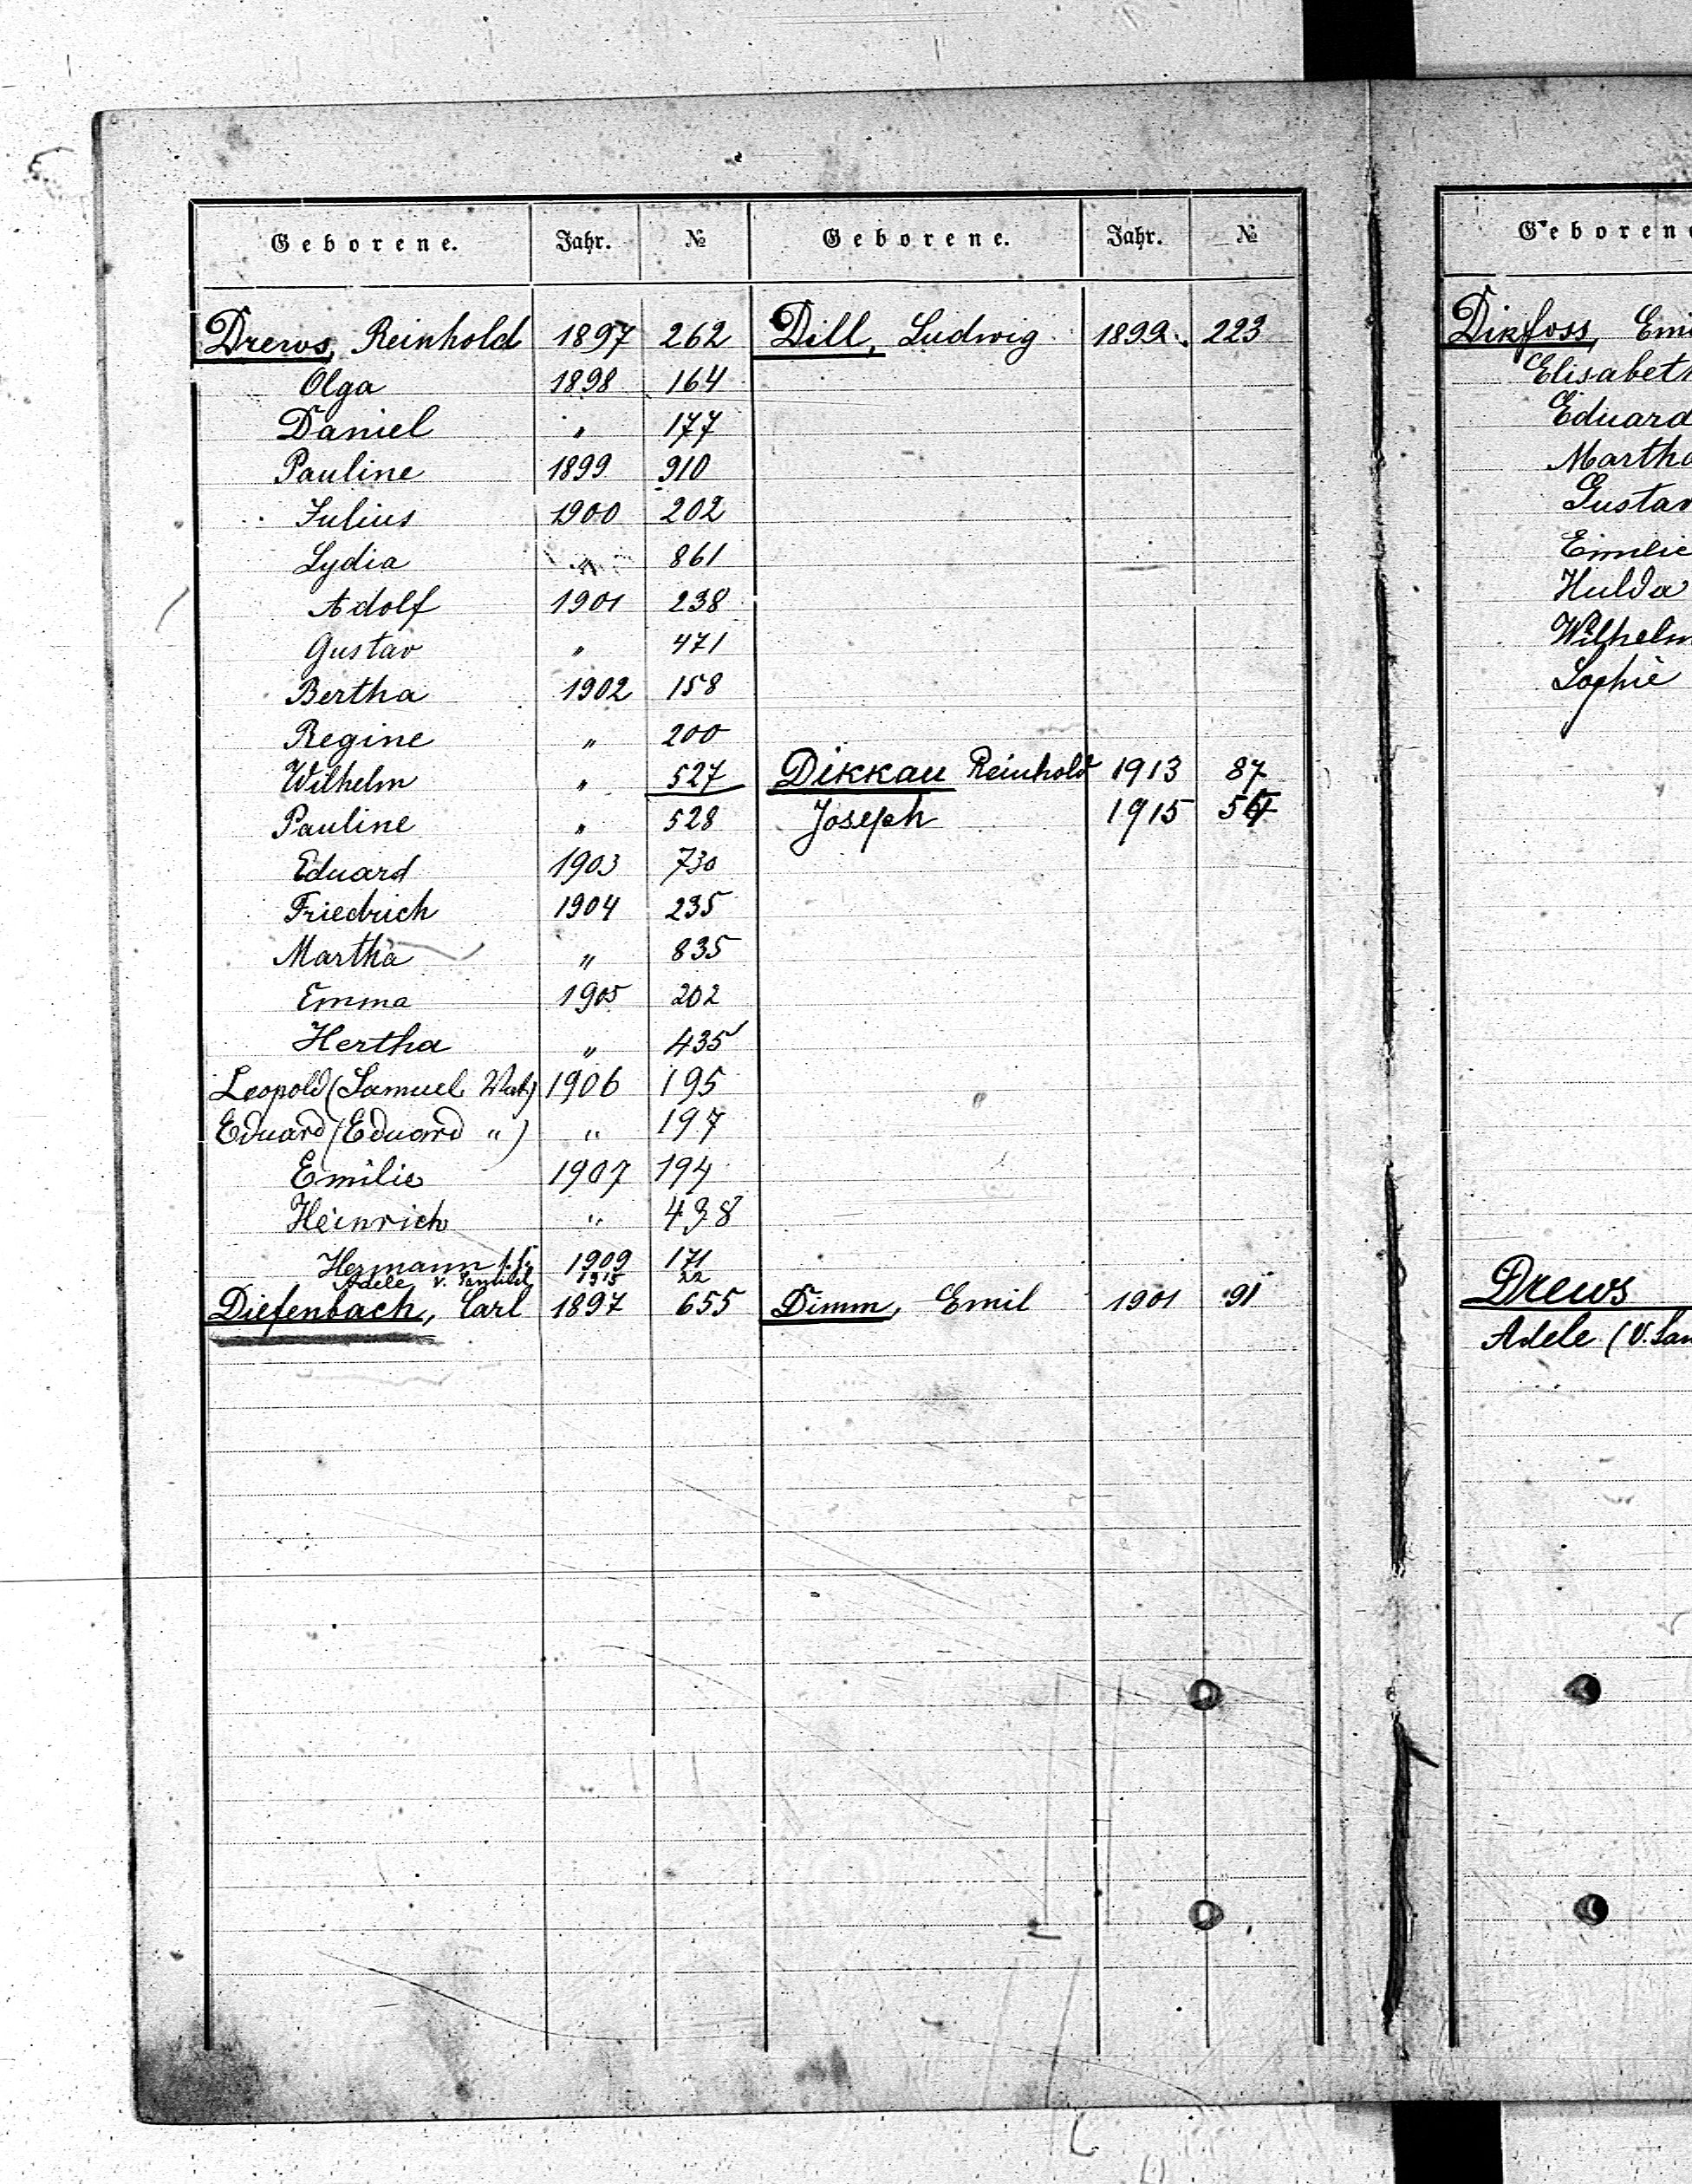 Geborene. Jahr. №
Drews, Reinhold 1897 262
Olga 1898 164
Daniel " 177
Pauline 1899 910
Julius 1900 202
Lydia " 861
Adolf 1901 238
Gustav " 471
Bertha 1902 158
Regine " 200
Wilhelm " 527
Pauline " 528
Eduard 1903 730
Friedrich 1904 235
Martha " 835
Emma 1905 202
Hertha " 435
Leopold (Samuel Vat) 1906 195
Eduard (Eduard ") " 197
Emilie 1907 194
Heinrich " 438
Hermann 1909 171
Adele v. 1915 22
Diefenbach, Carl 1897 655
Geborene. Jahr. №
Dill, Ludwig 1899 223
Dikkau Reinhold 1913 87
Joseph 1915
Dimm, Emil 1901 91
Geborene
Dikfoss, Emi
Elisabeth
Eduard
Martha
Gustav
Emilie
Hulda
Wilhelm
Sophie
Drews
Adele (V. Sam